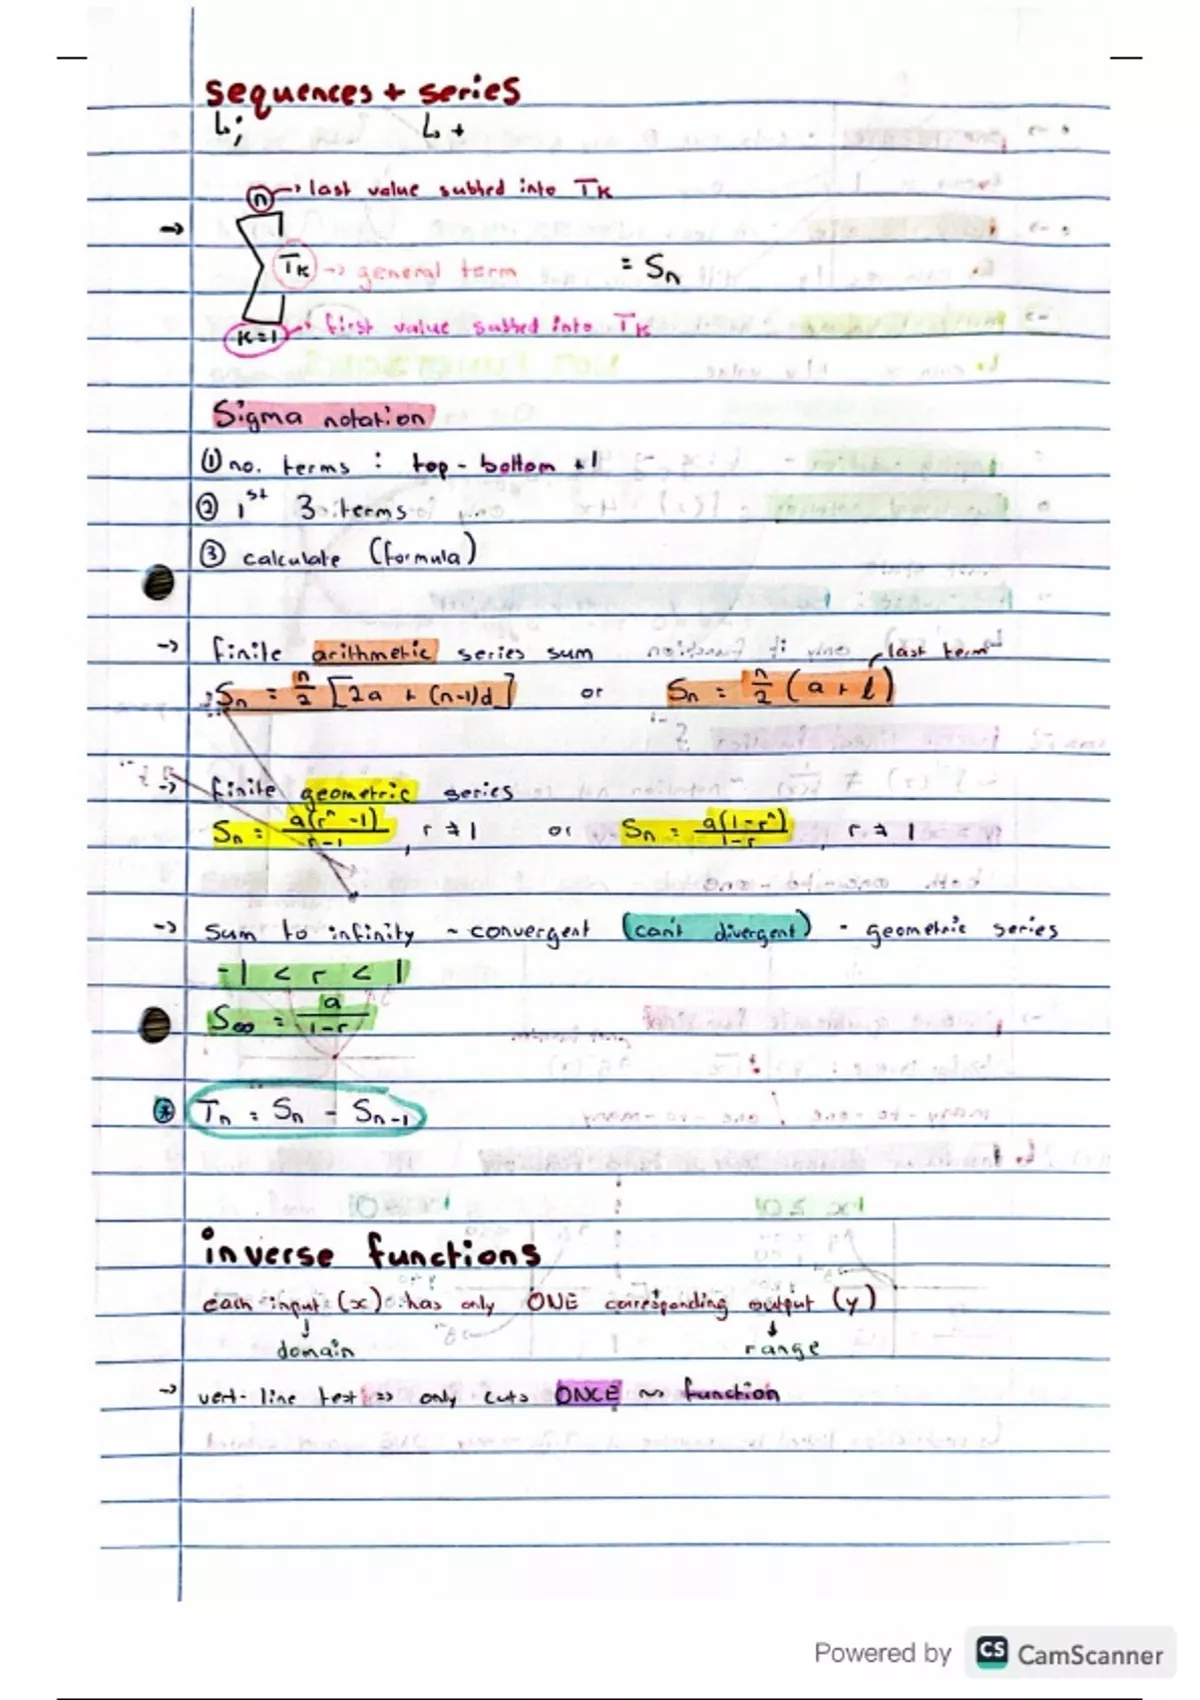 sequences + series
↳ ; ↳ +
n → last value subbed into Tk
→ Σ Tk → general term = Sn
k=1 → first value subbed into Tk
Sigma notation
① no. terms : top - bottom +1
② 1st 3 terms
③ calculate (formula)
→ finite arithmetic series sum
last term
Sn = n/2 [2a + (n-1)d] or Sn = n/2 (a + l)
→ finite geometric series
Sn = a(r^n - 1)/r-1 , r ≠ 1 or Sn = a(1-r^n)/1-r , r ≠ 1
→ sum to infinity ~ convergent (can't divergent) - geometric series
-1 < r < 1
S∞ = a/1-r
* Tn = Sn - Sn-1
inverse functions
each input (x) has only ONE corresponding output (y)
↓ ↓
domain range
→ vert. line test => only cuts ONCE ~ function
Powered by CS CamScanner